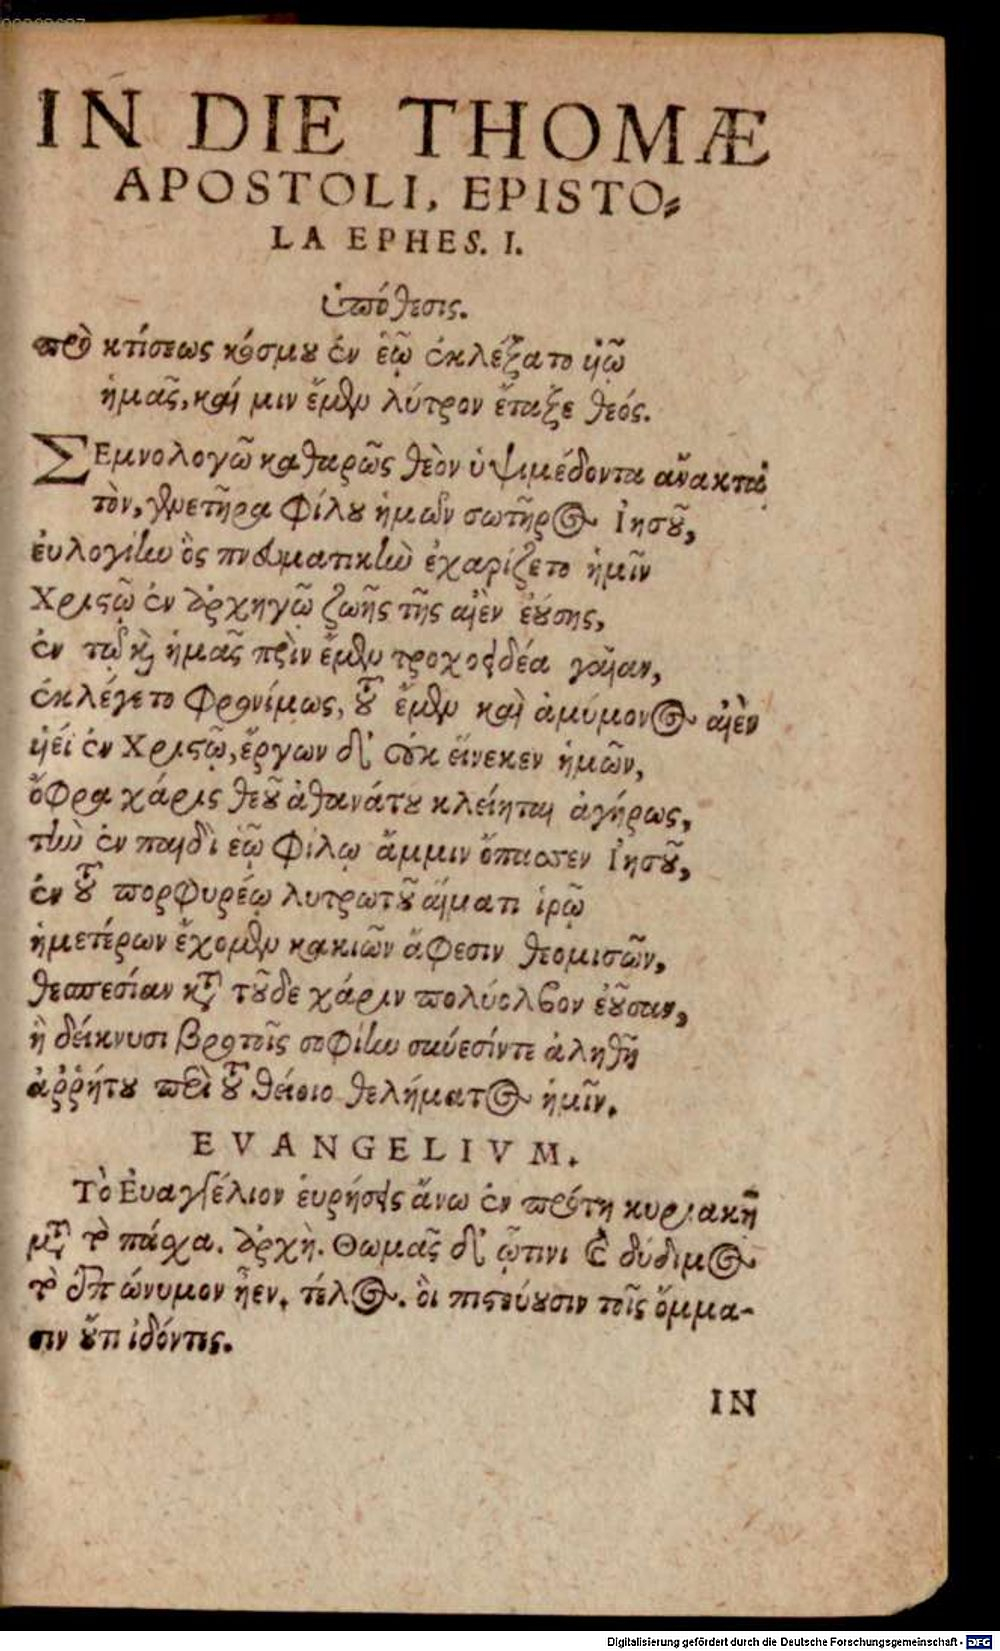 IN DIE THOMÆ
APOSTOLI, EPISTO⸗
LA EPHES. I.
ὑπόθεσις.
πρὸ κτίσεως κόσμου ἐν ἑῷ ἐκλέξατο ὑιῷ
ἡμᾶς, καί μιν ἔμεν λύτρον ἔταξε θεός.
ΣΕμνολογῶ καθαρῶς θεὸν ὑψιμέδοντα ἄνακτά
τὸν, γενετῆρα φίλου ἡμῶν σωτῆρος Ἰησοῦ,
ἐυλογίην ὃς πνευματικὴν ἐχαρίζετο ἡμῖν
Χριστῷ ἐν ἀρχηγῷ ζωῆς τῆς αἰὲν ἐούσης,
ἐν τῷ καὶ ἡμᾶς πρὶν ἔμεν τροχοειδέα γαῖαν,
ἐκλέγετο φρονίμως, τοῦ ἔμεν καὶ ἀμύμονος αἰὲν
ὑιεῖ ἐν Χριστῷ, ἔργων δ' οὐκ εἵνεκεν ἡμῶν,
ὄφρα χάρις θεοῦ ἀθανάτου κλείηται ἀγήρως,
τὴν ἐν παιδὶ ἑῷ φίλῳ ἄμμιν ὄπασσεν Ἰησοῦ,
ἐν τοῦ πορφυρέῳ λυτρωτοῦ αἵματι ἱρῷ
ἡμετέρων ἔχομεν κακιῶν ἄφεσιν θεομισῶν,
θεσπεσίαν κατὰ τοῦδε χάριν πολύολβον ἐοῦσαν,
ἣ δείκνυσι βροτοῖς σοφίην σκύεσίντε ἀληθῆ
ἀῤῥήτου περὶ τοῦ θείοιο θελήματος ἡμῖν.
EVANGELIVM.
Τὸ Ἐυαγγέλιον ἑυρήσεις ἄνω ἐν πρώτῃ κυριακῇ
μετὰ τὸ πάσχα. ἀρχή. Θωμᾶς δ' ᾧτινι καὶ δύδιμος
τὸ ἐπώνυμον ἦεν. τέλος. οἳ πιστεύουσιν τοῖς ὄμμα-
σιν οὔτι ἰδόντες.
IN
Digitalisierung gefördert durch die Deutsche Forschungsgemeinschaft - DFG